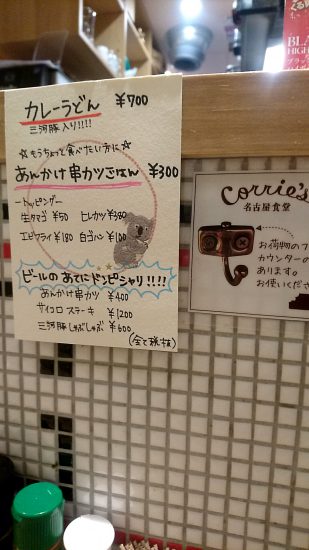 カレーうどん ¥700
三河豚入り!!!!
☆もうちょっと食べたい方に☆
あんかけ串カツごはん ¥300
ートッピングー
生タマゴ ¥50 ヒレカツ ¥380
エビフライ ¥180 白ゴハン ¥100
ビールのあてにドンピシャリ!!!!
あんかけ串カツ ¥400
サイコロステーキ ¥1200
三河豚しゃぶしゃぶ ¥600
(全て税抜)
Corrie's
名古屋食堂
お荷物のフ
カウンターの
あります。
お使いくださ
BLA
HIGH